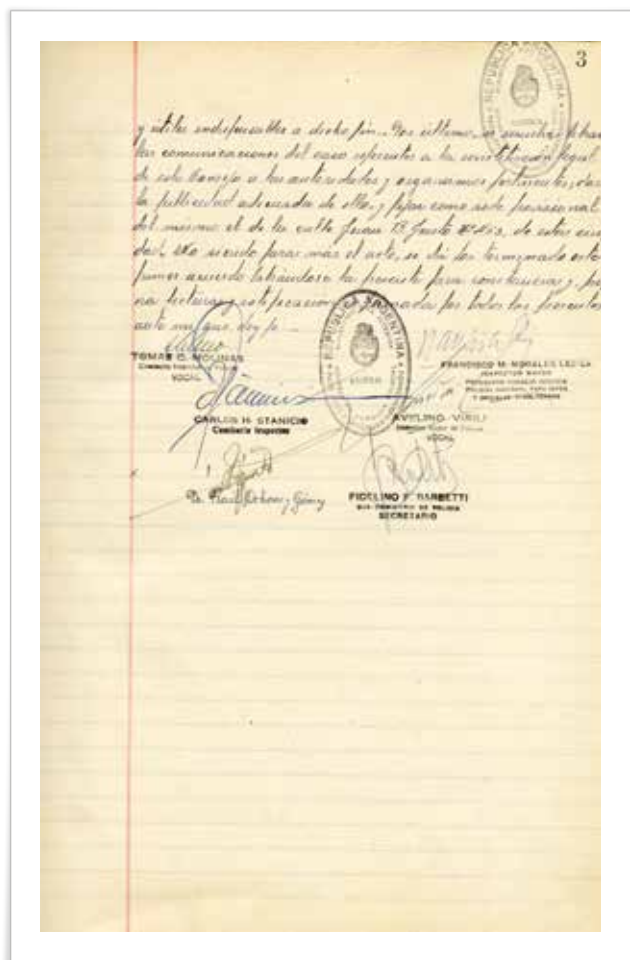 3
REPUBLICA ARGENTINA
y útiles indispensables a dicho fin. Por último, se resuelve
las comunicaciones del caso referentes a la constitución legal
de este Consejo a las autoridades y organismos pertinentes, dar
la publicidad adecuada de ello, y fijar como sede
del mismo el de la calle Juan B. Justo de esta ciu
dad. No siendo para más el acto, se da por terminado este
primer acuerdo labrándose la presente para constancia y, pre
via lectura y ratificación, firmada por todos los presentes
ante mí que doy fe.
REPUBLICA ARGENTINA
TOMAS C. MOLINAS
VOCAL
FRANCISCO M. MORALES
INSPECTOR MAYOR
CARLOS H. STANICIO
Comisario Inspector
AVELINO VIRILI
VOCAL
Dr. Raúl Gómez
FIDELINO F. BARBETTI
SUB-COMISARIO DE POLICIA
SECRETARIO